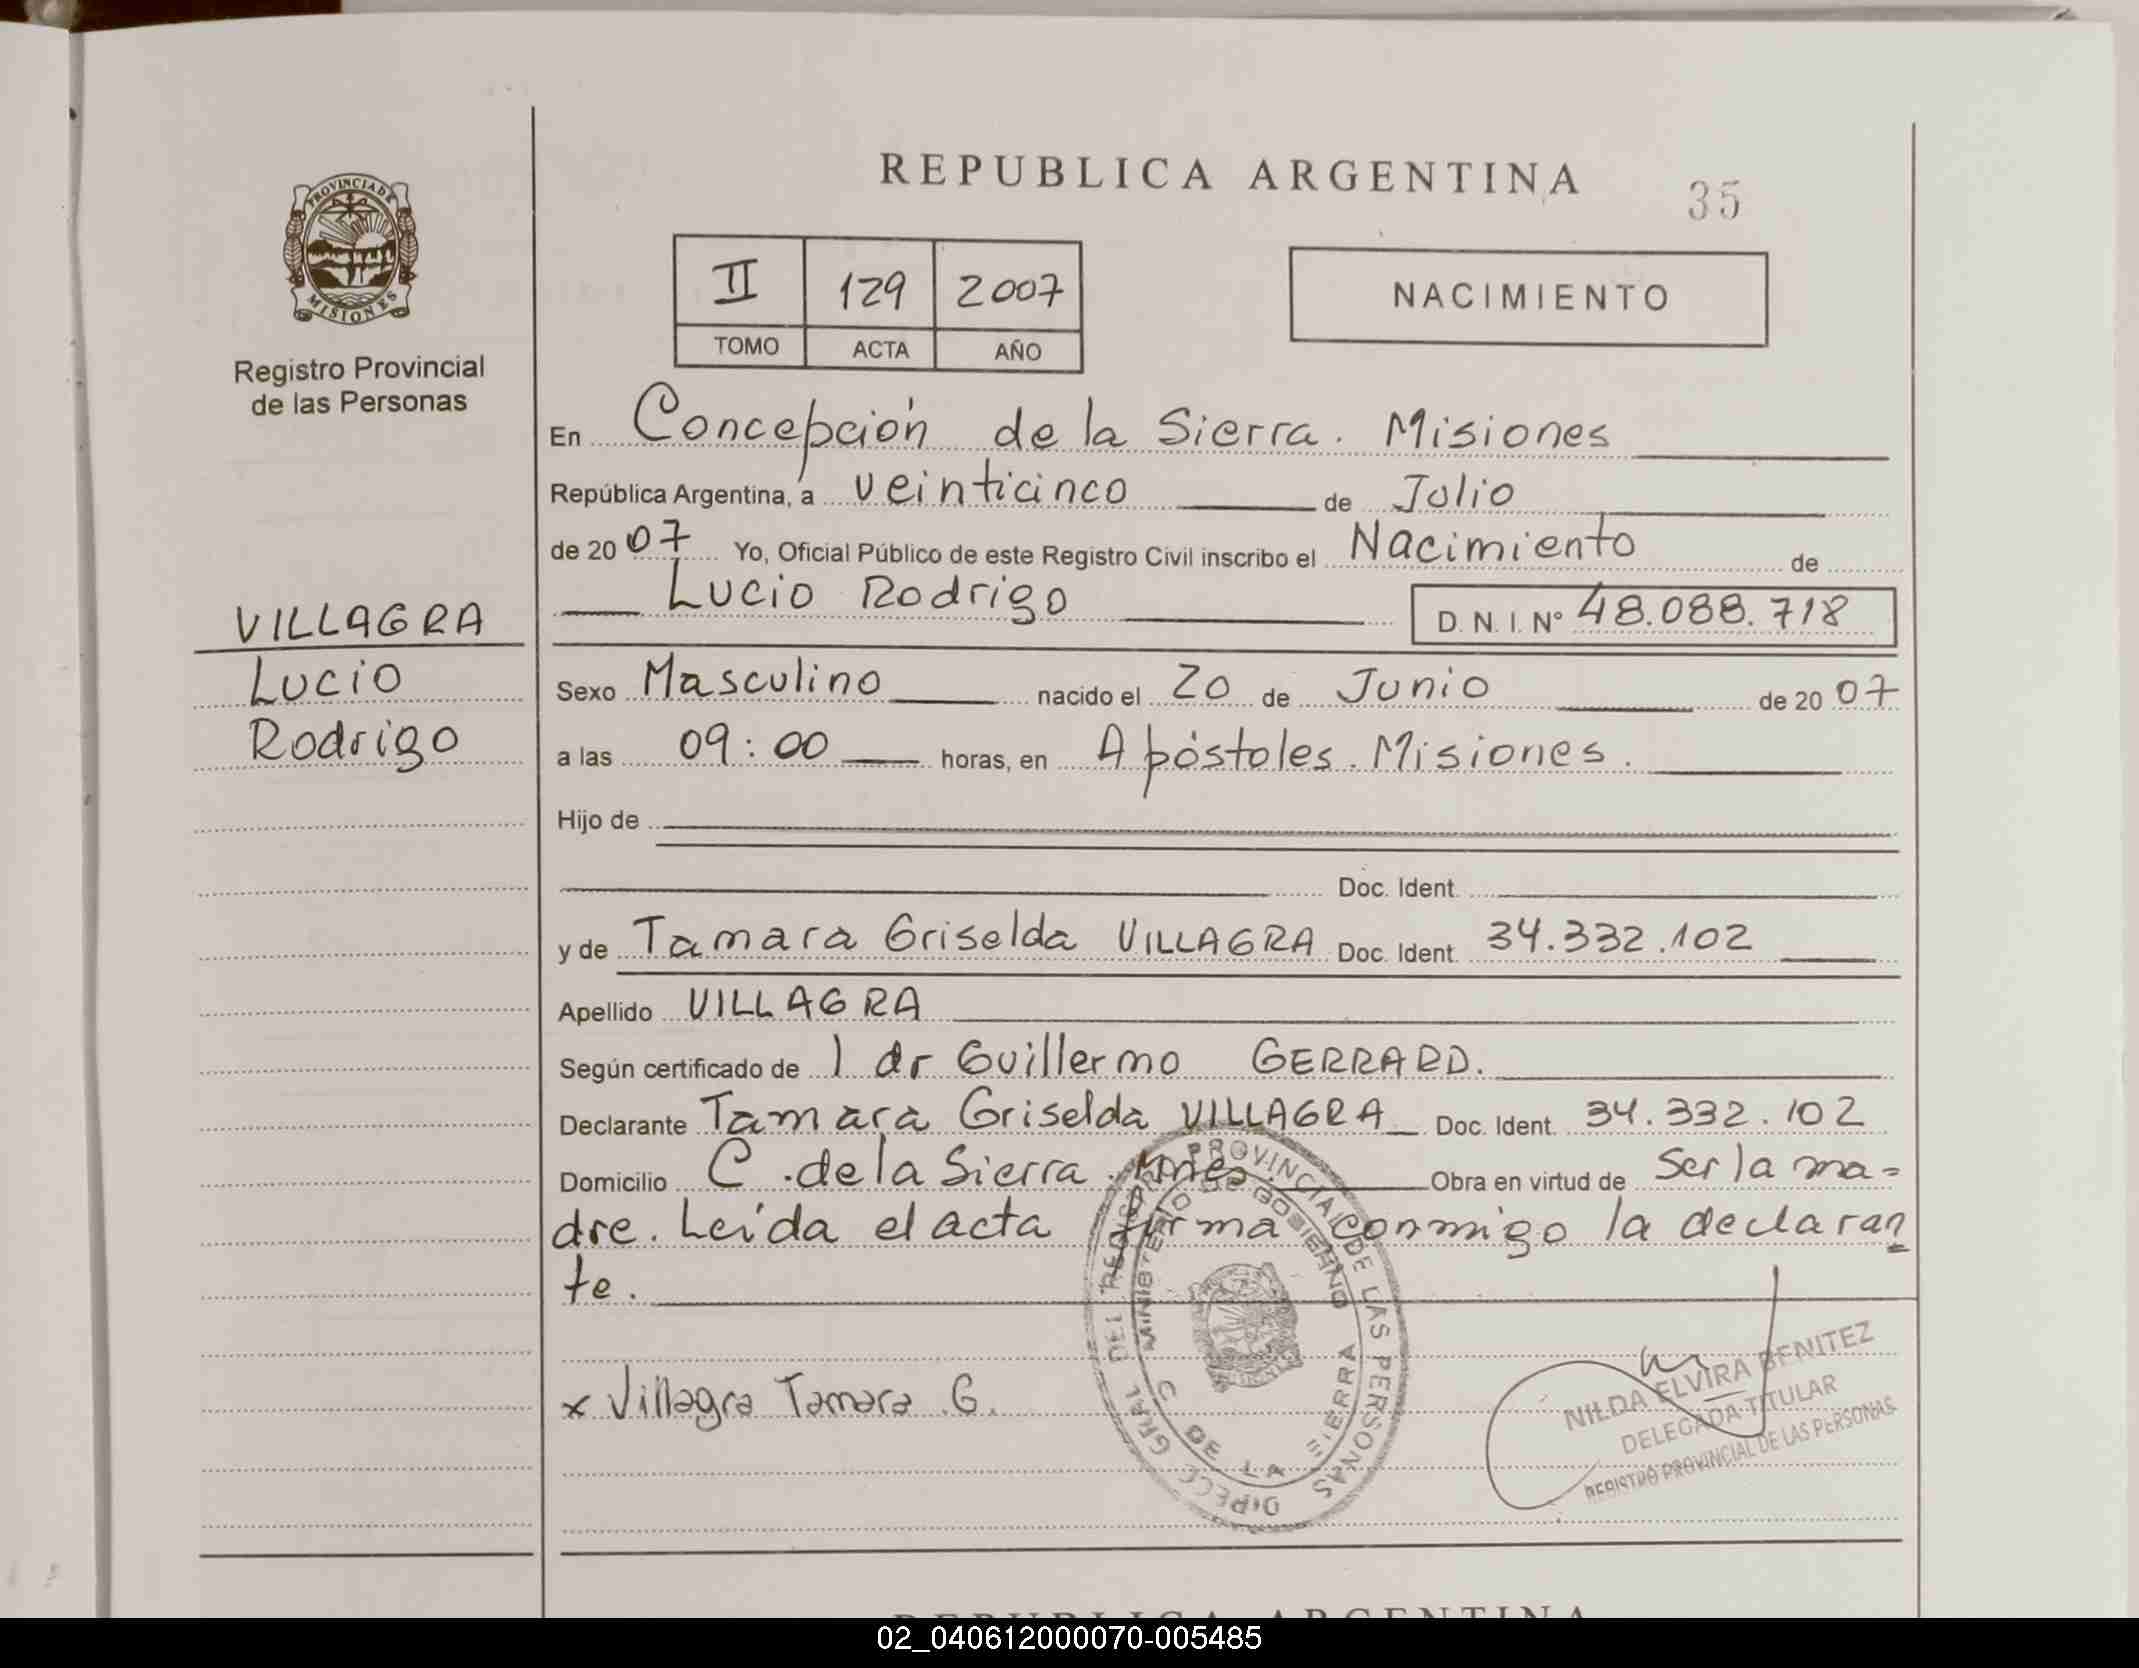 REPUBLICA ARGENTINA
35
PROVINCIA DE
MISIONES
Registro Provincial
de las Personas
II 129 2007
TOMO ACTA AÑO
NACIMIENTO
En Concepción de la Sierra. Misiones
República Argentina, a veinticinco de Julio
de 20 07 Yo, Oficial Público de este Registro Civil inscribo el Nacimiento de
Lucio Rodrigo D. N. I. Nº 48.088.718
VILLAGRA
Lucio
Rodrigo
Sexo Masculino nacido el 20 de Junio de 20 07
a las 09:00 horas, en Apóstoles. Misiones.
Hijo de
Doc. Ident.
y de Tamara Griselda VILLAGRA Doc. Ident. 34.332.102
Apellido VILLAGRA
Según certificado de 1 dr Guillermo GERRARD.
Declarante Tamara Griselda VILLAGRA Doc. Ident. 34.332.102
Domicilio C. de la Sierra. Mnes. Obra en virtud de Ser la ma=
dre. Leída el acta firma conmigo la declaran
te.
x Villagra Tamara G.
DIRECC GRAL DEL REGISTRO PROVINCIAL DE LAS PERSONAS
MINISTERIO DE GOBIERNO
C DE LA SIERRA
NILDA ELVIRA BENITEZ
DELEGADA TITULAR
REGISTRO PROVINCIAL DE LAS PERSONAS
REPUBLICA ARGENTINA
02_040612000070-005485